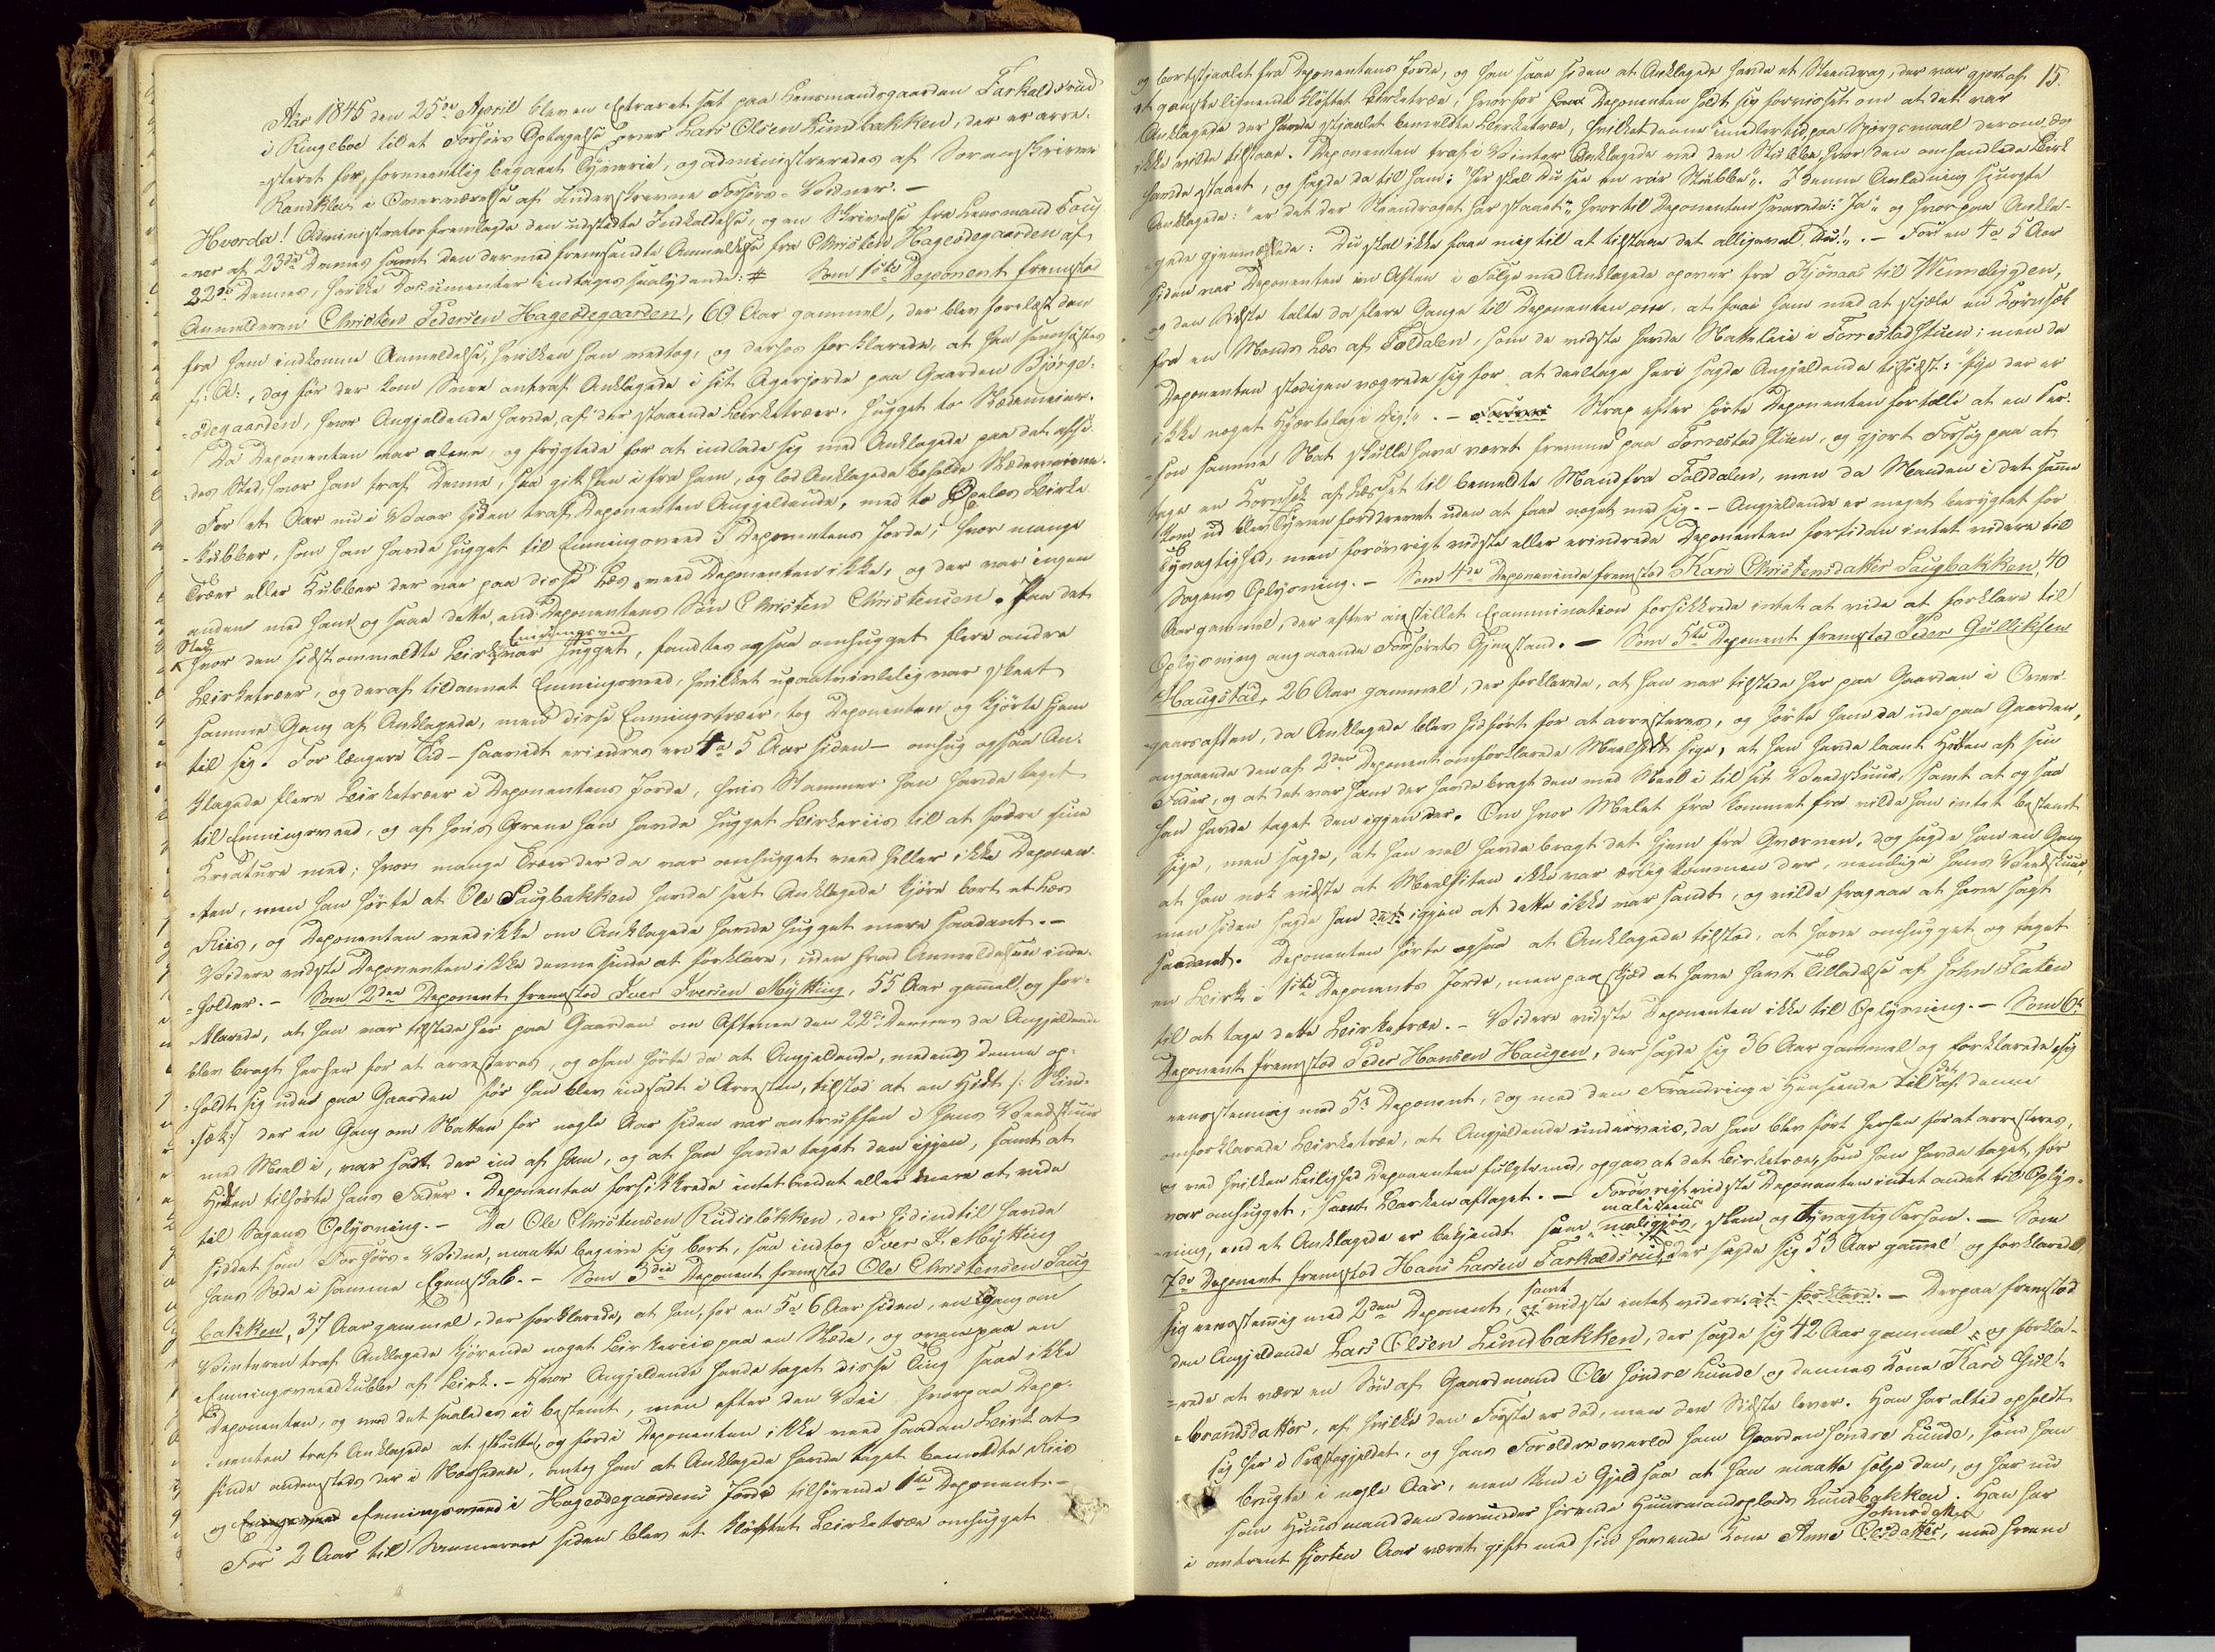 Aar 1845 den 25de April blev en Extraret sat paa Lensmandsgaarden Farkaldsrud
i Ringeboe til et Forhørs Optagelse over Lars Olsen Lundbakken, der er arre-
steret for formeentlig begaaet Tyverie, og administreredes af Sorenskriver
Randklev i Overværelse af Underskrevne Forhørs-Vidner. –
Hvorda! Administrator fremlagde den udstædte Indkaldelse, og en Skrivelse fra Lensmand
af 23de Dennes samt den dermed fremsendte Anmeldelse fra Christen Hageødegaarden af
22de Dennes, hvilke Documenter indtages saalydende: # Som 1ste Deponent fremstod
Anmelderen Christen Pedersen Hageødegaarden, 60 Aar gammel, der blev forelæst den
fra ham indkomne Anmeldelse, hvilken han vedtog, og derhos forklarede, at han sennhøstes
f: A:, dog før der kom Snee antraf Anklagede i sit Agerjorde paa Gaarden Bjørge-
ødegaarden, hvor Angjældende havde, af der staaende Birketræer, hugget to Slædemeier.
Da Deponenten var alene, og frygtede for at indlade sig med Anklagede paa det afsi-
des Sted, hvor han traf Denne, saa gik han i fra ham, og lod Anklagede beholde Slædemeierne.
For et Aar nu i Vaar siden traf Deponenten Angjeldende, med to Læs Birke
kubber, som han havde hugget til Emningsveed i Deponentens Jorde; hvor mange
Træer eller Kubber der var paa disse Læs veed Deponenten ikke, og der var ingen
anden med ham og saae dette, end Deponentens Søn Christen Christensen. Paa det
Sted
hvor den sidstommeldte Birk Emningsved var hugget, fandtes ogsaa omhugget flere andre
Birketræer, og deraf tildannet Emningsveed, hvilket upaatvivlelig var skeet
samme Gang af Anklagede, men disse Emningstræer, tog Deponenten og kjørte hjem
til sig. For længere Tid – saavidt erindres en 4 a 5 Aar siden – omhug ogsaa An-
klagede flere Birketræer i Deponentens Jorde, hvis Stammer han havde taget
til Emningsveed, og af hvis Grene han havde hugget Birkeriis til at fodre sine
Kreature med; hvor mange Træer der da var omhugget veed heller ikke Deponen-
ten, men han hørte at Ole Saugbakken havde seet Anklagede kjøre bort et Læs
Riis, og Deponenten veed ikke om Anklagede havde hugget mere saadant. –
Videre vidste Deponenten ikke denne sinde at forklare, uden hvad Anmeldelsen inde-
holder. – Som 2den Deponent fremstod Iver Iversen Mytting, 55 Aar gammel, og for-
klarede, at han var tilstede her paa Gaarden om Aftenen den 22de Dennes da Angjældende
blev bragt herhen for at arresteres, og han hørte da at Angjeldende, medens denne op-
holdt sig ude paa Gaarden før han blev indsadt i Arresten, tilstod at en Hidt /: Skind-
sæk:/ der en Gang om Natten for nogle Aar siden var antruffen i hans Veedskuur
med Meel i, var sadt der ind af ham, og at han havde taget den igjen, samt at
Hidten tilhørte hans Fader. Deponenten forsikkrede intet andet eller mere at vide
til Sagens Oplysning. – Da Ole Christensen Rudieløkken, der hidindtil havde
siddet som Forhørs-Vidne, maatte begive sig bort, saa indtog Iver I. Mytting
hans Sæde i samme Egenskab. – Som 3die Deponent fremstod Ole Christensen Saug
bakken, 37 Aar gammel, der forklarede, at han, for en 5 a 6 Aar siden, en Gang om
Vinteren traf Anklagede kjørende noget Birkeriis paa en Slæde, og ovenpaa en
Emningsveedkubbe af Birk. – Hvor Angjeldende havde taget disse Ting saae ikke
Deponenten, og ved det saaledes ei bestemt, men efter den Vei hvorpaa Depo-
nenten traf Anklagede at skutte, og fordi Deponenten ikke veed saadan Birk at
finde andensteds der i Nærheden, antog han at Anklagede havde taget bemeldte Riis
og Emningsveed i Hageødegaardens Jorde tilhørende 1ste Deponent. –
For 2 Aar till Sommeren siden blev et kløftet Birketræe omhugget
15.
og bortstjaalet fra Deponentens Jorde, og han saae siden at Anklagede havde et Steendrag, der var gjort af
et ganske lignende kløftet Birketræe, hvorfor Deponenten holdt sig forvisset om at det var
Anklagede der havde stjaalet bemeldte Birketræe, hvilket denne imidlertid, paa Spørgsmaal derom, dog
ikke vilde tilstaae. Deponenten traf i Vinter Anklagede ved den Stubbe, hvor den omhandlede Birk
havde staaet, og sagde da til ham: "her skal Du see en rar Stubbe". I denne Anledning spurgte
Anklagede: "er det der Steendraget har staaet", hvortil Deponenten svarede: "Ja", og hvorpaa Ankla-
gede gjenmælede: Du skal ikke faae mig til at tilstaae det alligevel Du!". – For en 4 a 5 Aar
siden var Deponenten en Aften i Følge med Anklagede opover fra Kjønaas til Wenebygden,
og den Sidste talte da flere Gange til Deponenten om, at faae ham med at stjæle en Kornsæk
fra en Mands Læs af Foldalen, som de vidste havde Natteleie i Forrestadstuen; men da
Deponenten stedigen vægrede sig for at deeltage heri sagde Angjældende tilsidst: "tye der er
ikke noget Hjærtelaje i Dig!". – Strax efter hørte Deponenten fortælle at en Per-
son samme Nat skulle have været fremme paa Forrestad Stuen, og gjort Forsøg paa at
tage en Kornsæk af Læsset til bemeldte Mand fra Folddalen, men da Manden i det samme
kom ud blev Tyven forddrevet uden at faae noget med sig. – Angjeldende er meget berygtet for
Tyvagtighed, men forøvrigt vidste eller erindrede Deponenten fortiden intet videre til
Sagens Oplysning. – Som 4de Deponerinde fremstod Kari Christensdatter Saugbakken, 40
Aar gammel, der efter anstillet Exammination forsikkrede intet at vide at forklare til
Oplysning angaaende Forhørets Gjenstand. – Som 5te Deponent fremstod Peder Gulliksen
Haugstad, 26 Aar gammel, der forklarede, at han var tilstede her paa Gaarden i Over-
gaarsaften, da Anklagede blev hidført for at arresteres, og hørte ham da ude paa Gaarden,
angaaende den af 2den Deponent omforklarede Meelhidt sige, at han havde laant Hidten af sin
Fader, og at det var ham der havde bragt den med Meel i til sit Veedskuur, samt at ogsaa
han havde taget den igjen der. Om hvor Melet fra kommet fra vilde han intet bestemt
sige, men sagde, at han vel havde bragt det hjem fra Qværnen, dog sagde han en Gang
at han nok vidste at Meelhiten ikke var ærlig kommen der, nemlig i hans Veedskuur,
men siden sagde han dette igjen at dette ikke var sandt, og vilde fragaae at have sagt
saadant. Deponenten hørte ogsaa at Anklagede tilstod, at have omhugget og taget
en Birk i 1ste Deponents Jorde, men paaskjød at have havt Tilladelse af John Flaten
til at tage dette Birketræe. – Videre vidste Deponenten ikke til Oplysning. – Som 6te
Deponent fremstod Peder Hansen Haugen, der sagde sig 36 Aar gammel og forklarede sig
eensstemmig med 5te Deponent, dog med den Forandring i Henseende til det af denne
omforklarede Birketræe, at Angjeldende underveis, da han blev ført herhen for at arresteres,
og ved hvilken Leilighed Deponenten fulgte med, opgav at det Birketræe, som han havde taget, før
var omhugget, samt Barken aftaget. – Forøvrigt vidste Deponenten intet andet til Oplys-
ning, end at Anklagede er bekjendt som malitieus, slem og Tyvagtig Person. – Som
7de Deponent fremstod Hans Larsen Farkaldsrud, der sagde sig 53 Aar gammel og forklarede
sig eensstemmig med 2den Deponent, samt vidste intet videre at forklare. – Derpaa fremstod
den Angjeldende Lars Olsen Lundbakken, der sagde sig 42 Aar gammel og forkla-
rede at være en Søn af Gaardmand Ole Søndre Lunde og dennes Kone Kari Guld-
brandsdatter, af hvilke den Første er død, men den Sidste lever. Han har altid opholdt
sig her i Præstegjeldet, og hans Forældre overlod ham Gaarden Søndre Lunde, som han
brugte i nogle Aar, men kom i Gjeld saa at han maatte sælge den, og har nu
som Huusmand den derunder hørende Huusmandsplads Lundbakken. Han har
i omtrent fjorten Aar været gift med sin havende Kone Anne Johnsdatter, med hvem